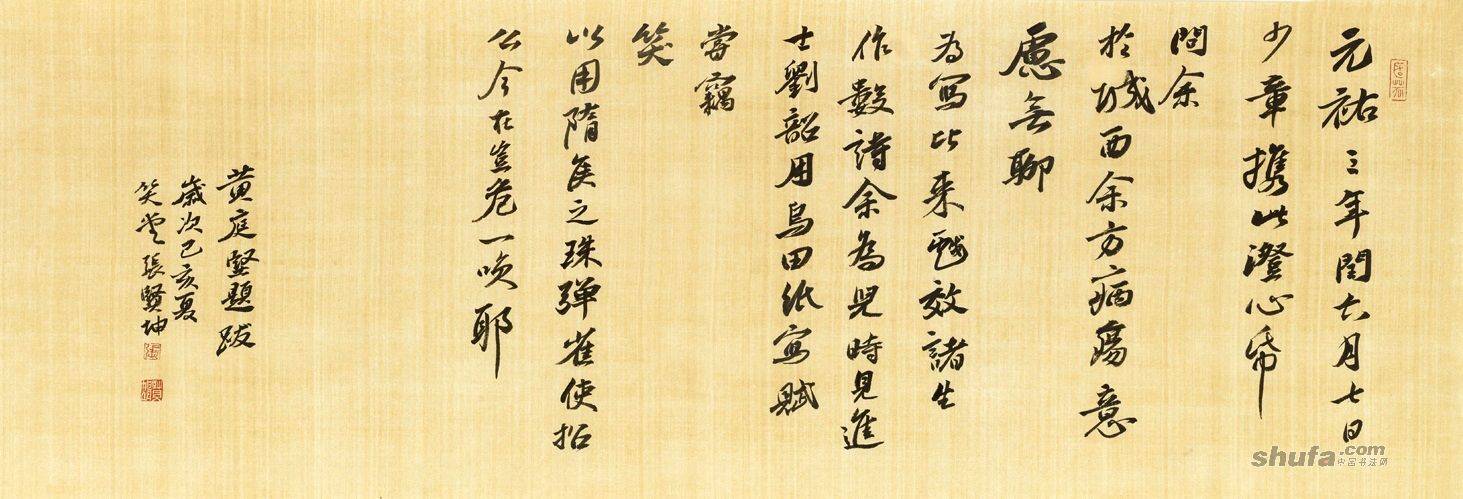 元祐三年閏六月七日
少章攜此澄心帋
問余
於城西余方病瘍意
慮無聊
為寫比来戲效諸生
作數詩余為兒時見進
士劉韶用烏田紙寫賦
嘗竊
笑
以用隋侯之珠弹雀使招
公今在豈免一唤耶
黄庭堅題跋
歲次己亥夏
笑堂張賢坤
shufa.com
中国书法网